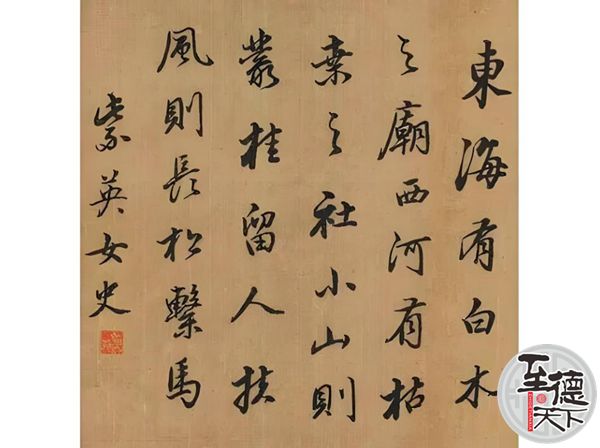 東海有白木
之廟西河有枯
桒之社小山則
叢桂留人扶
風則長松繫馬
紫英女史
至德天下